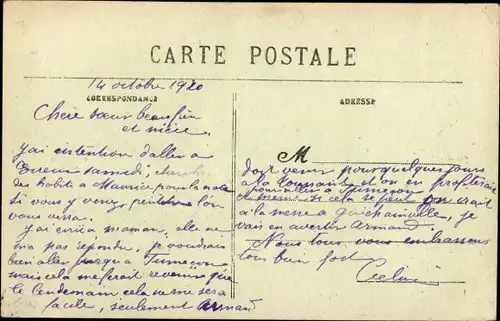 CARTE POSTALE
14 octobre 1920
CORRESPONDANCE
ADRESSE
Chère sœur beau frère
et nièce,
j'ai l'intention d'aller a
samedi, chercher
des habits a Maurice pour la noce
si vous y venez, peut être l'on
vous verra.
j'ai écrit a maman, elle ne
m'a pas répondu, je voudrais
bien aller jusqu'a Jumecon
mais cela me ferait revenir que
le lendemain cela ne me sera
facile, seulement Armand
M
doit venir pour quelques jours
a la et on en profiterait
pour aller a Jumecon
et meme si cela se peut on irait
a la messe a je
vais en avertir Armand
Nous tous vous embrassons
tous bien fort
Celine